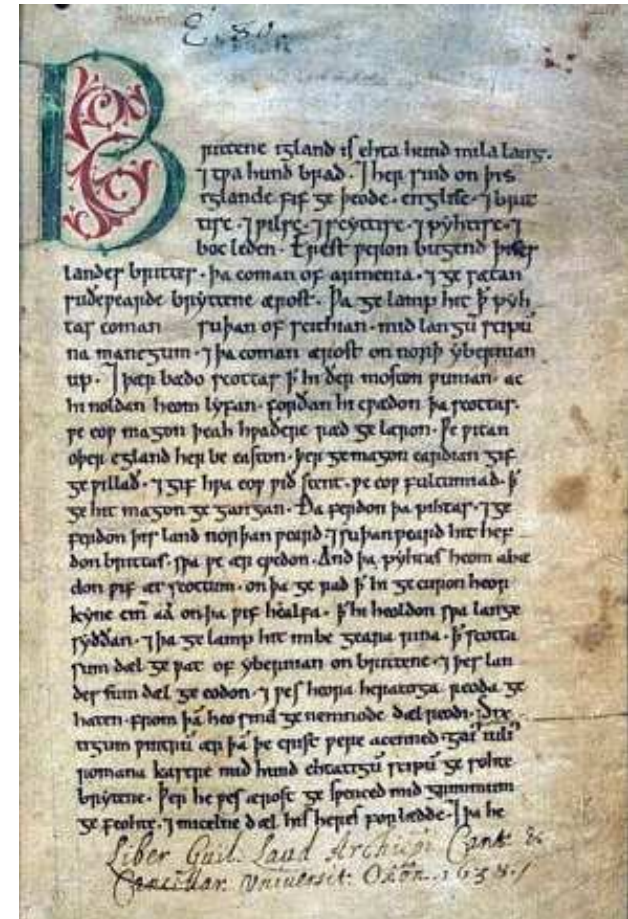 E. 80
Brittene igland is ehta hund mila lang.
⁊ tƿa hund brad. ⁊ her sind on þis
iglande fif ge þeode. englisc. ⁊ brit
tisc. ⁊ ƿilsc. ⁊ scyttisc. ⁊ pyhtisc. ⁊
boc leden. Erest ƿeron bugend þises
landes brittes. þa coman of armenia. ⁊ ge sætan
suðeƿearde bryttene ærost. Þa ge lamp hit þ̄ pyh
tas coman suþan of scithian. mid langū scipū
na manegum. ⁊ þa coman ærost on norþ ybernian
up. ⁊ þær bædo scottas þ̄ hi ðer moston ƿunian. ac
hi noldan heom lyfan. forðan hi cƿædon þa scottas.
ƿe eoƿ magon þeah hƿaðere ræd ge læron. Ƿe ƿitan
oþer egland her be easton. þer ge magon eardian gif
ge ƿillað. ⁊ gif hƿa eoƿ ƿið stent. ƿe eoƿ fultumiað. þ̄
ge hit magon ge gangan. Ða ferdon þa pihtas. ⁊ ge
ferdon þis land norþan ƿeard. ⁊ suþanƿeard hit hef
don brittas. sƿa ƿe ær cƿedon. And þa pyhtas heom abæ
don ƿif æt scottum. on þa ge rad þ̄ hi ge curon heor
kyne cīn aa on þa ƿif healfa. þ̄ hi heoldon sƿa lange
syððan. ⁊ þa ge lamp hit imbe geara rina. þ̄ scotta
sum dæl ge ƿat of ybernian on brittene. ⁊ þes lan
des sum dæl ge eodon. ⁊ ƿes heora heratoga reoda ge
haten. from þā heo sind ge nemnode dæl reodi. Six
tigum ƿintrū ær þā þe crist ƿere acenned. gai' iuli'
romana kasere mid hund ehtatigū scipū ge sohte
brytene. Þer he ƿes ærost ge sƿenced mid grimmum
ge feohte. ⁊ micelne dæl his heres forlædde. ⁊ þa he
Liber Guil. Laud Archiepi Cant. &
Cancillar. Universit: Oxon. 1638.